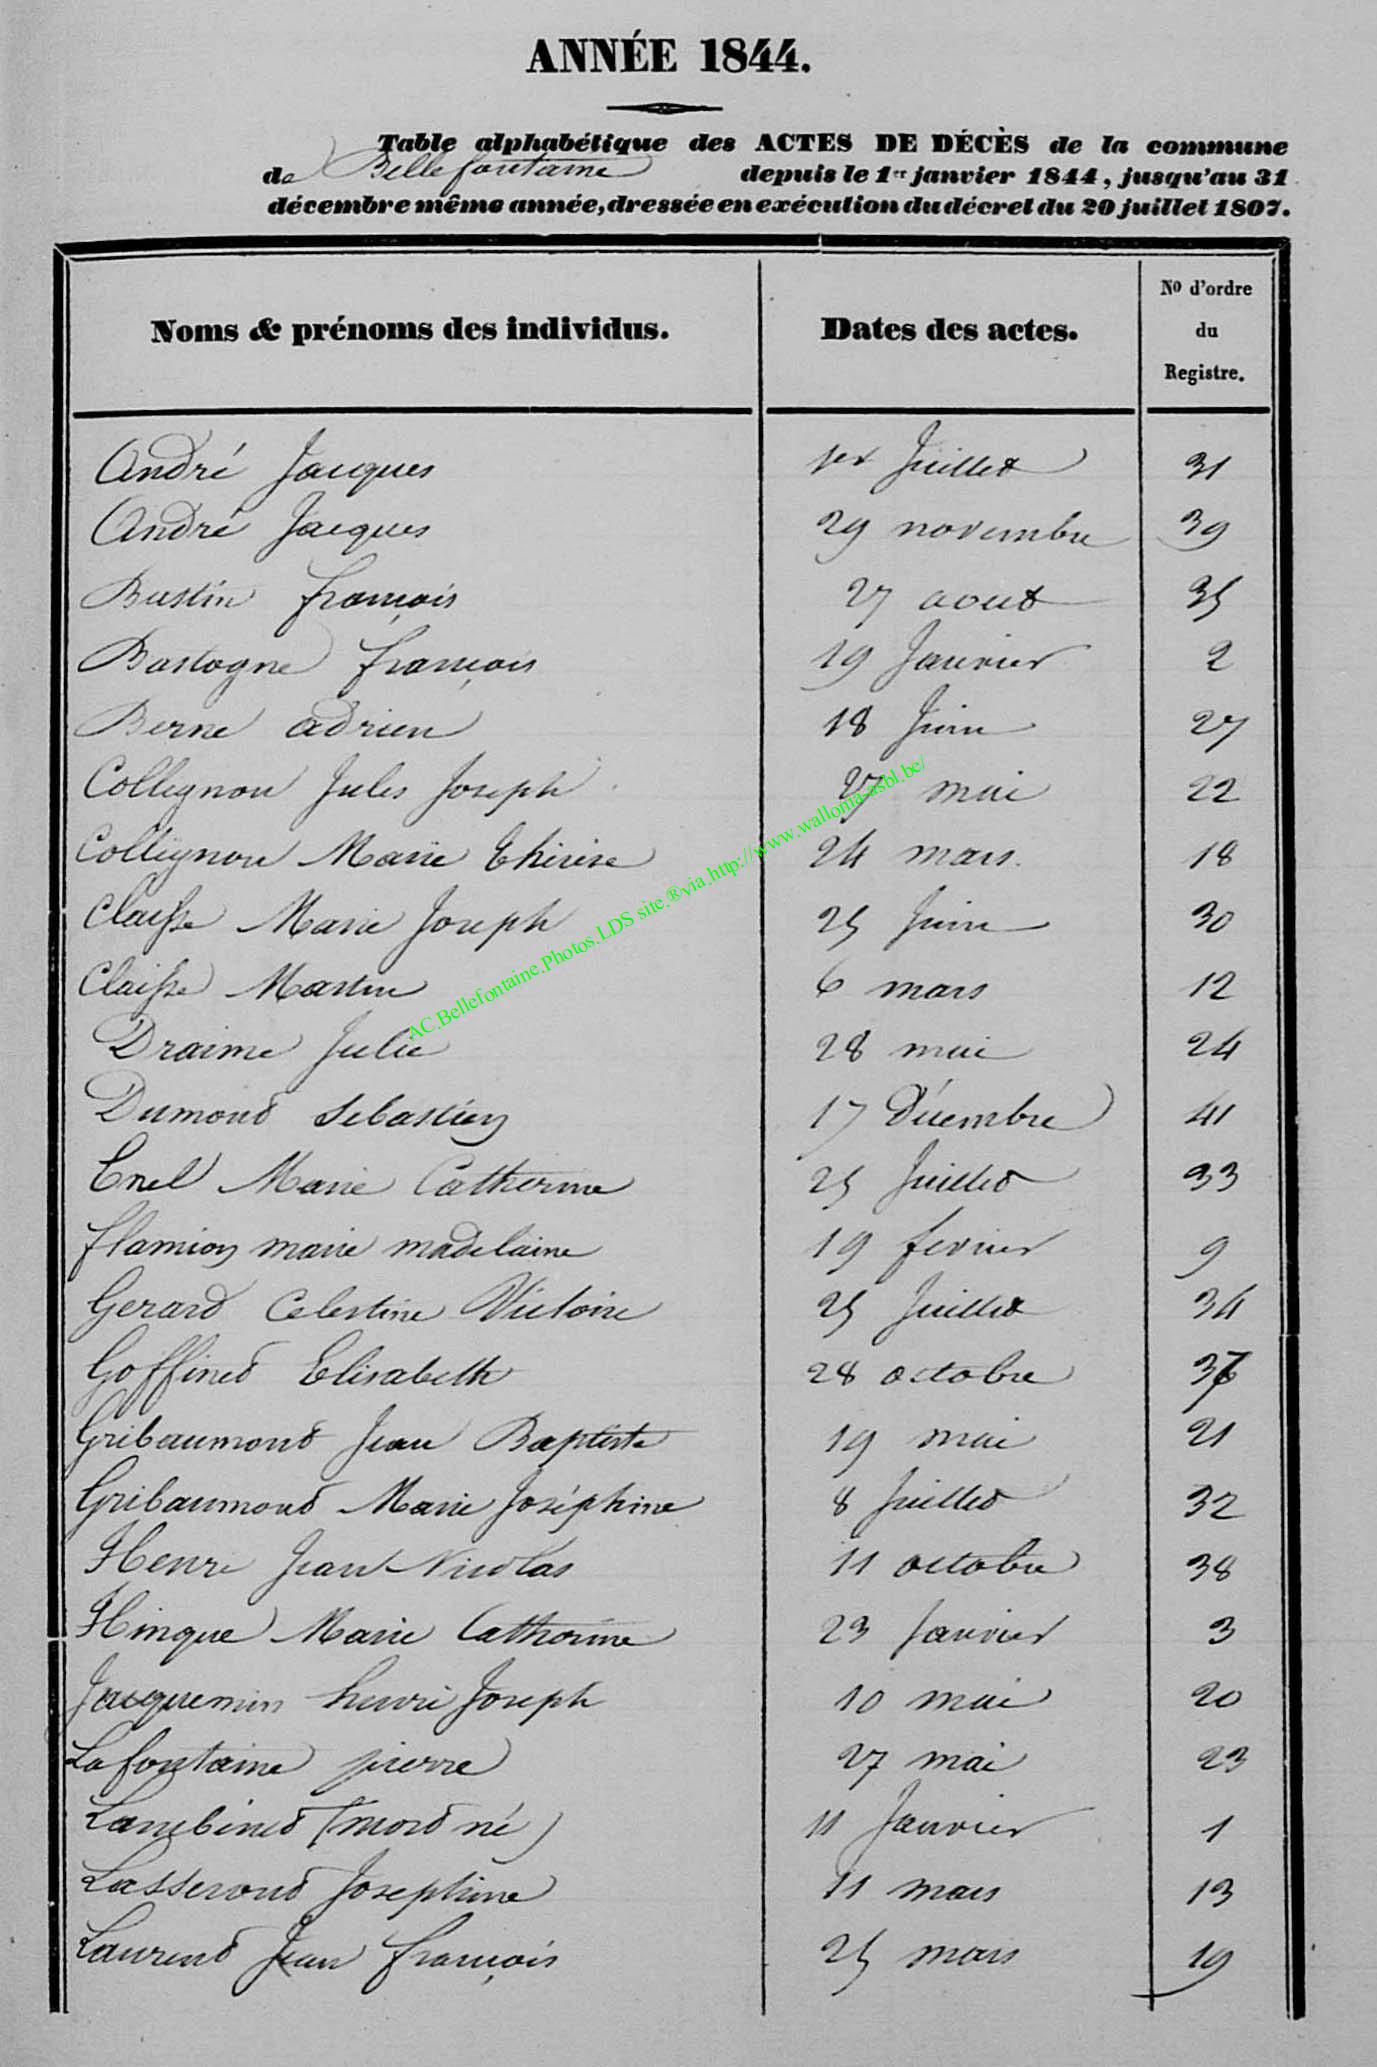 ANNÉE 1844.
Table alphabétique des ACTES DE DÉCÈS de la commune
de Bellefontaine depuis le 1er janvier 1844, jusqu'au 31
décembre même année, dressée en exécution du décret du 20 juillet 1807.
Noms & prénoms des individus. Dates des actes. No d'ordre du Registre.
André Jacques 1er Juillet 31
André Jacques 29 novembre 39
Bustin françois 27 aout 35
Bastogne françois 19 Janvier 2
Berne adrien 18 Juin 27
Collignon Jules Joseph 27 mai 22
Collignon Marie Thérèse 24 mars. 18
Claisse Marie Joseph 25 Juin 30
Claisse Martin 6 mars 12
Draime Julie 28 mai 24
Dumont Sebastien 17 Décembre 41
Enel Marie Catherine 25 Juillet 33
flamion marie madelaine 19 fevrier 9
Gerard Celestine Victoire 25 Juillet 34
Goffinet Elisabeth 28 octobre
Gribaumont Jean Baptiste 19 mai 21
Gribaumont Marie Joséphine 8 Juillet 32
Henri Jean Nicolas 11 octobre 38
Hinque Marie Catherine 23 Janvier 3
Jacquemin henri Joseph 10 mai 20
Lafontaine pierre 27 mai 23
Lambinet (mort né) 11 Janvier 1
Lasseront Josephine 11 mars 13
Laurent Jean françois 25 mars 19
AC.Bellefontaine.Photos.LDS site.®via.http://www.wallonia-asbl.be/